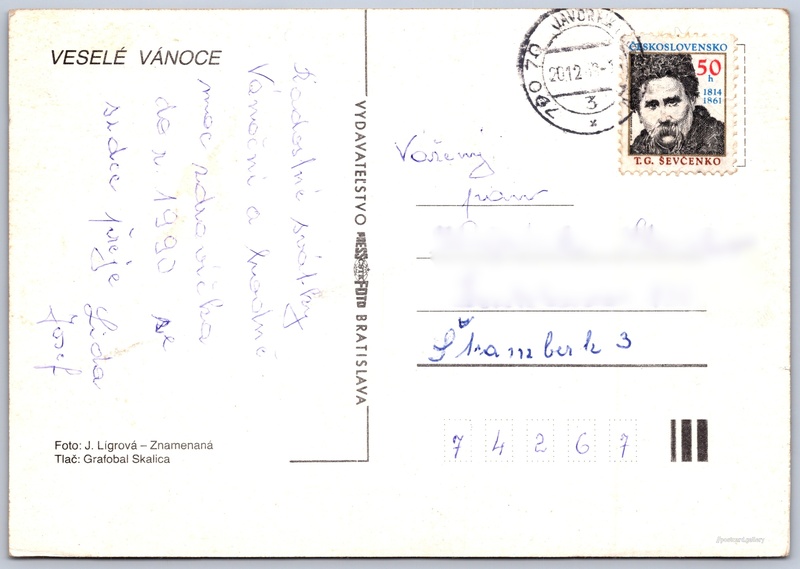 VESELÉ VÁNOCE
Radostné svátky
Vánoční a hodně
moc zdravíčka
do r. 1990 ze
srdce přeje Lída
Josef
Foto: J. Lígrová – Znamenaná
Tlač: Grafobal Skalica
VYDAVATEĽSTVO PRESSFOTO BRATISLAVA
700 70
20.12
3
ČESKOSLOVENSKO
50
h
1814
1861
T.G. ŠEVČENKO
Vážený
pan
Štramberk 3
74267